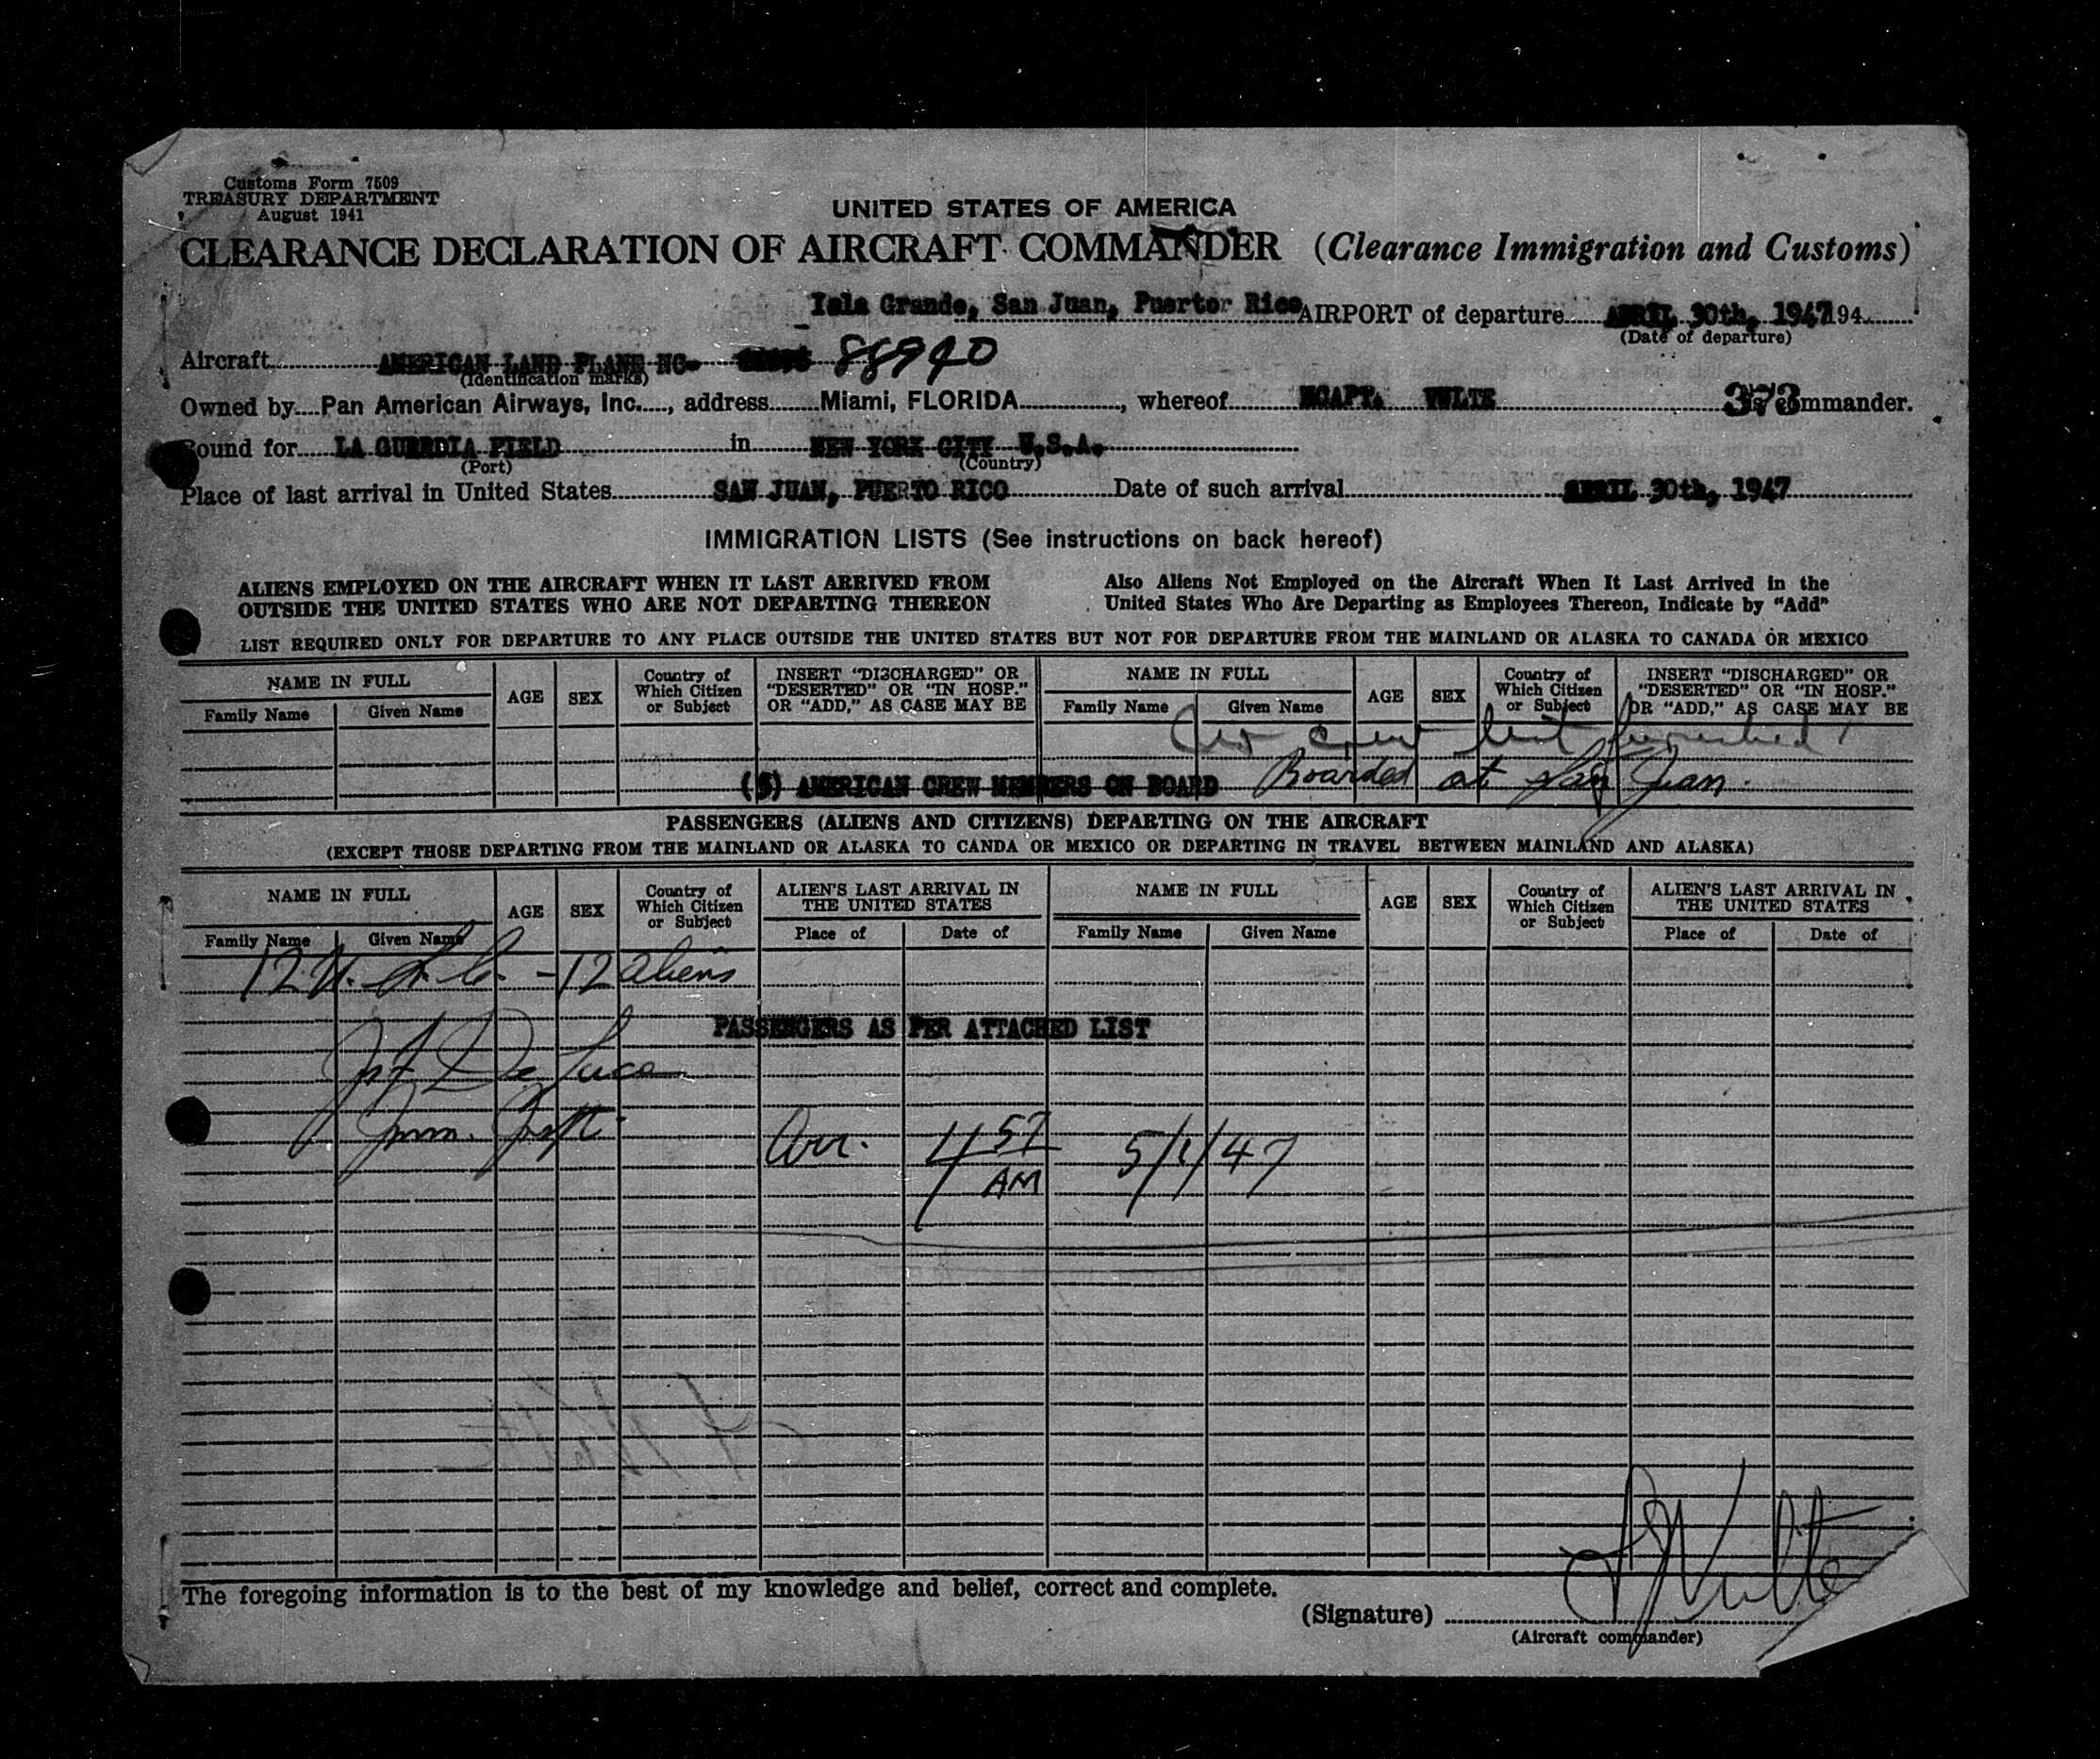 Customs Form 7509
TREASURY DEPARTMENT
August 1941
UNITED STATES OF AMERICA
CLEARANCE DECLARATION OF AIRCRAFT COMMANDER (Clearance Immigration and Customs)
Isla Grande, San Juan, Puertor Rico AIRPORT of departure APRIL 30th, 1947 194
(Date of departure)
Aircraft AMERICAN LAND PLANE NC- 88940
(Identification marks)
Owned by Pan American Airways, Inc., address Miami, FLORIDA, whereof VULTE 373 is commander.
Bound for LA GUERDIA FIELD in NEW YORK CITY U.S.A.
(Port) (Country)
Place of last arrival in United States SAN JUAN, PUERTO RICO Date of such arrival APRIL 30th, 1947
IMMIGRATION LISTS (See instructions on back hereof)
ALIENS EMPLOYED ON THE AIRCRAFT WHEN IT LAST ARRIVED FROM
OUTSIDE THE UNITED STATES WHO ARE NOT DEPARTING THEREON
Also Aliens Not Employed on the Aircraft When It Last Arrived in the
United States Who Are Departing as Employees Thereon, Indicate by "Add"
LIST REQUIRED ONLY FOR DEPARTURE TO ANY PLACE OUTSIDE THE UNITED STATES BUT NOT FOR DEPARTURE FROM THE MAINLAND OR ALASKA TO CANADA OR MEXICO
NAME IN FULL
Family Name Given Name
AGE
SEX
Country of
Which Citizen
or Subject
INSERT "DISCHARGED" OR
"DESERTED" OR "IN HOSP."
OR "ADD," AS CASE MAY BE
NAME IN FULL
Family Name Given Name
AGE
SEX
Country of
Which Citizen
or Subject
INSERT "DISCHARGED" OR
"DESERTED" OR "IN HOSP."
OR "ADD," AS CASE MAY BE
crew list furnished
(5) AMERICAN CREW MEMBERS ON BOARD Boarded at San Juan.
PASSENGERS (ALIENS AND CITIZENS) DEPARTING ON THE AIRCRAFT
(EXCEPT THOSE DEPARTING FROM THE MAINLAND OR ALASKA TO CANDA OR MEXICO OR DEPARTING IN TRAVEL BETWEEN MAINLAND AND ALASKA)
NAME IN FULL
Family Name Given Name
AGE
SEX
Country of
Which Citizen
or Subject
ALIEN'S LAST ARRIVAL IN
THE UNITED STATES
Place of Date of
NAME IN FULL
Family Name Given Name
AGE
SEX
Country of
Which Citizen
or Subject
ALIEN'S LAST ARRIVAL IN
THE UNITED STATES
Place of Date of
12 U.S.C. - 12 aliens
PASSENGERS AS PER ATTACHED LIST
De Luca
Imm. Insp.
Arr. 4 57 AM 5/1/47
The foregoing information is to the best of my knowledge and belief, correct and complete.
(Signature) Vulte
(Aircraft commander)